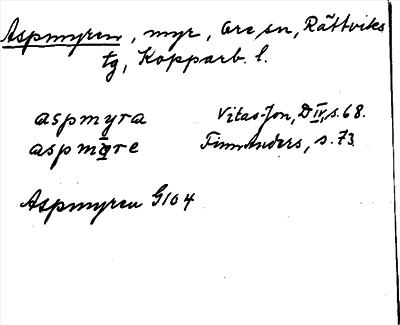 Aspmyren, myr, Ore sn, Rättviks
tg, Kopparb. l.
aspmyra Vitas-Jon, D IV, s. 68.
aspmyre Finn Anders, s. 73
Aspmyren G104